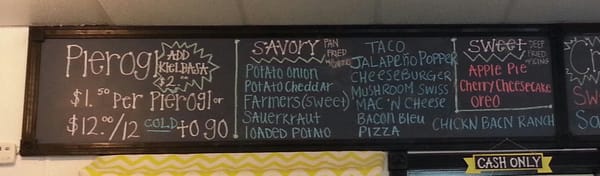 Pierogi
ADD
KIELBASA
$2.00
$1.50 per Pierogi or
$12.00/12 COLD to go
SAVORY PAN
FRIED
Potato Onion
Potato Cheddar
Farmers (Sweet)
Sauerkraut
Loaded Potato
TACO
JALAPEÑO POPPER
CHEESEBURGER
MUSHROOM SWISS
MAC 'N CHEESE
BACON BLEU
PIZZA
CHICKN BACN RANCH
SWEET DEEP
FRIED
Apple Pie
Cherry Cheesecake
Oreo
CASH ONLY